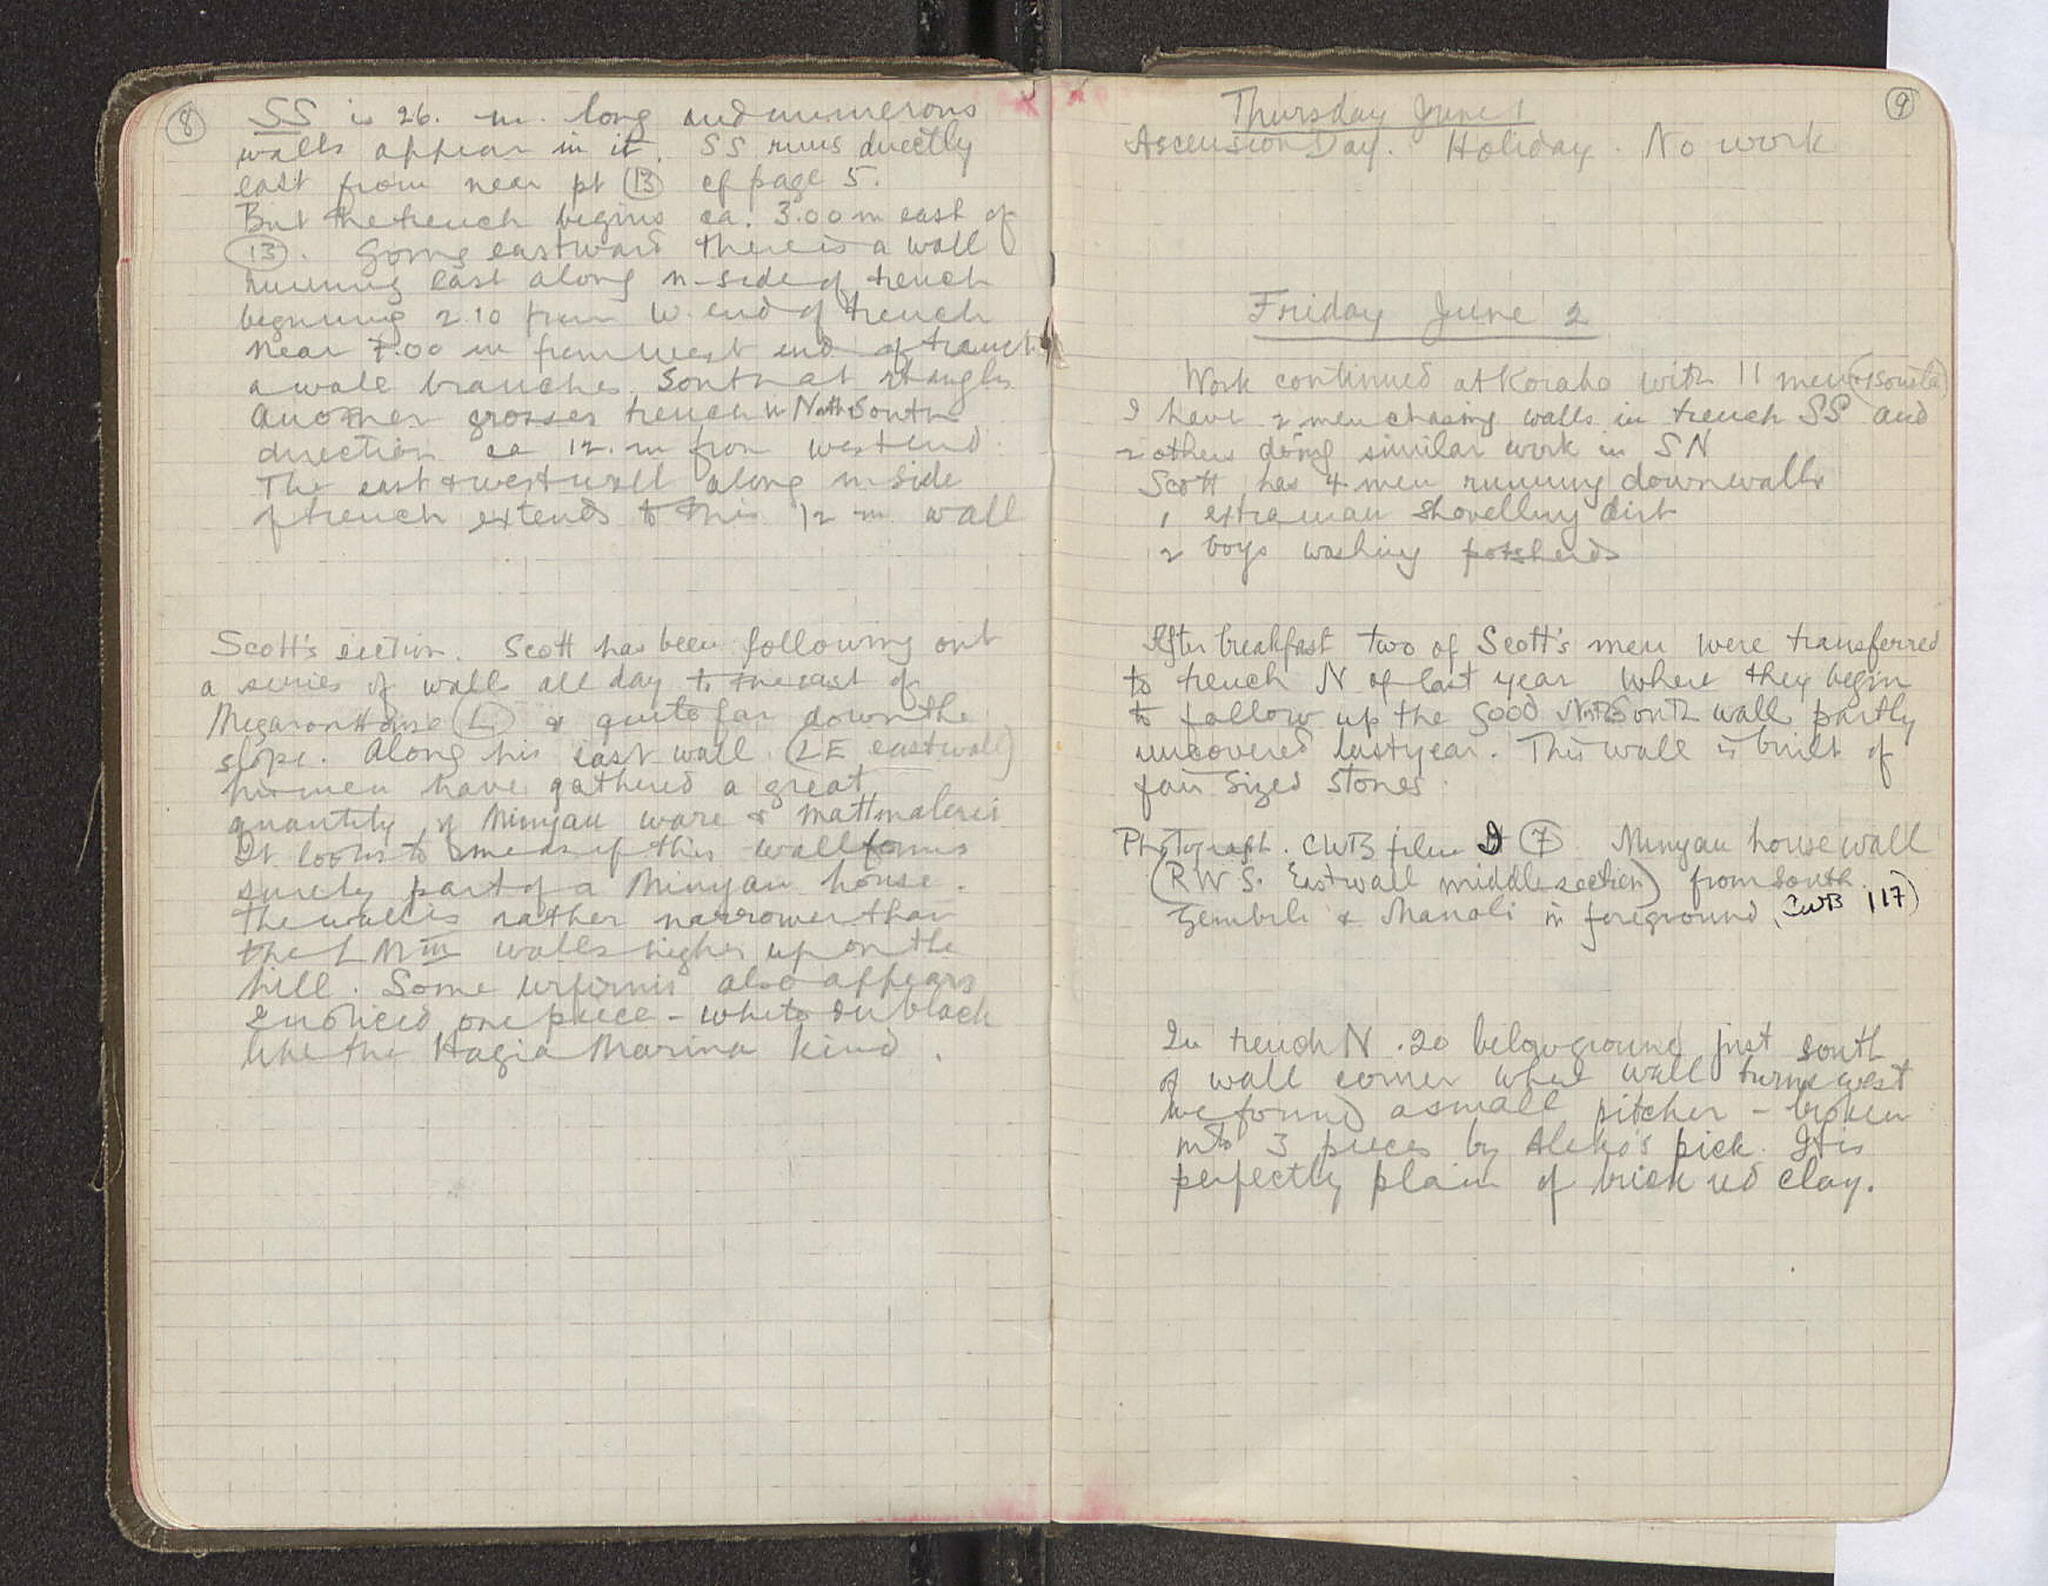 8
SS is 26. m. long and numerous
walls appear in it. SS runs directly
east from near pt 13 cf page 5.
But the trench begins ca. 3.00 m east of
13. Going eastward there is a wall
running east along n-side of trench
beginning 2.10 from W. end of trench
Near 7.00 m from west end of trench
a wall branches South at rt angles
Another crosses trench in North South
direction ca 12. m from west end.
The east & west wall along n side
of trench extends to this 12 m wall
Scott's section. Scott has been following out
a series of walls all day to the east of
Megaron House L & quite far down the
slope. Along his east wall (LE east wall)
his men have gathered a great
quantity of Minyan ware & mattmalerei
It looks to me as if this wall forms
surely part of a Minyan house.
The wall is rather narrower than
the LM III walls higher up on the
hill. Some urfirnis also appears
I noticed one piece - white on black
like the Hagia Marina kind.
9
Thursday June 1
Ascension Day. Holiday. No work
Friday June 2
Work continued at Korako with 11 men
I have 2 men chasing walls in trench SS and
2 others doing similar work in SN
Scott has 4 men running down walls
1 extra man shovelling dirt
2 boys washing potsherds
After breakfast two of Scott's men were transferred
to trench N of last year where they begin
to follow up the good North South wall partly
uncovered last year. This wall is built of
fair sized stones.
Photograph. CWB film 7 Minyan house wall
(RWS. East wall middle section) from south.
& Manoli in foreground (CWB 117)
In trench N .20 below ground just south
of wall corner where wall turns west
we found a small pitcher - broken
into 3 pieces by Aleko's pick. It is
perfectly plain of brick red clay.